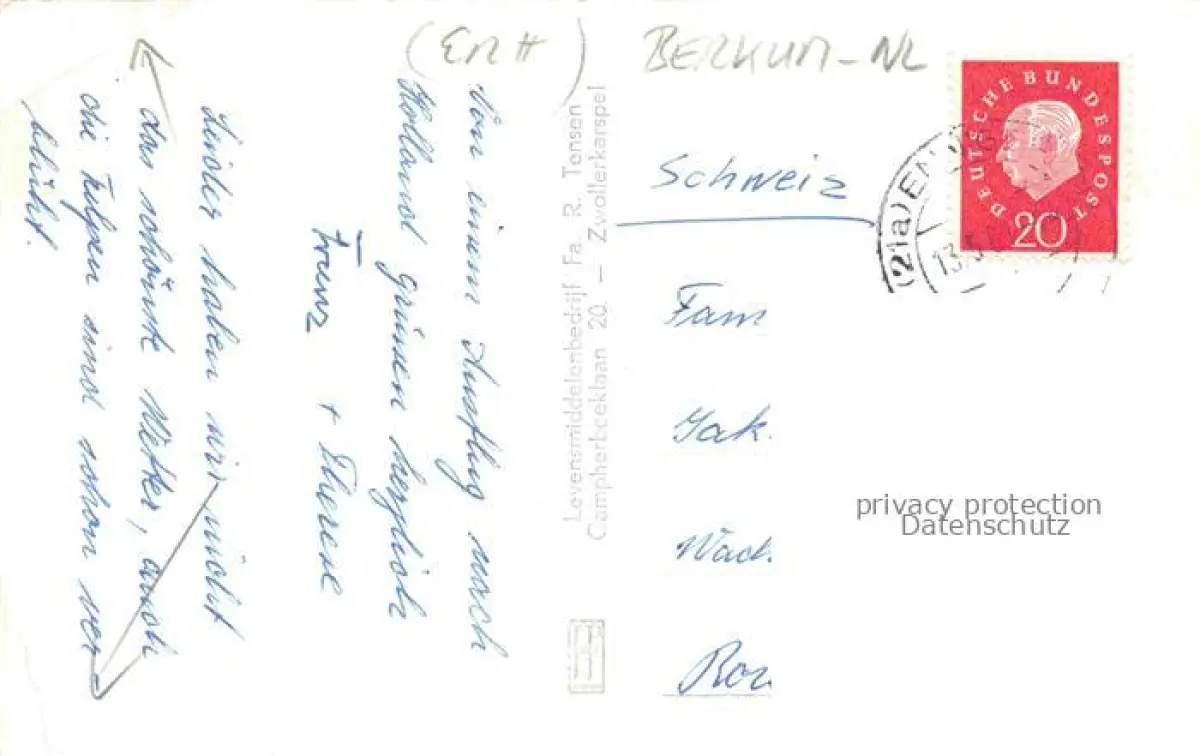 (ENH) BERKUM-NL
Von einem Ausflug nach
Holland grüssen herzlich
Franz + Therese
Leider haben wir nicht
das schönste Wetter, auch
die Tulpen sind schon ver
blüht.
Levensmiddelenbedrijf Fa. R. Tensen
Campherbeeklaan 20. — Zwollerkarspel
DEUTSCHE BUNDESPOST
20
(21a) EN
13.5
Schweiz
Fam
Jak.
privacy protection
Datenschutz